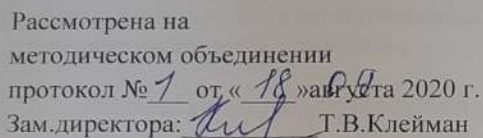 Рассмотрена на
методическом объединении
протокол № 1 от « 18 »августа 2020 г.
Зам.директора: Т.В.Клейман